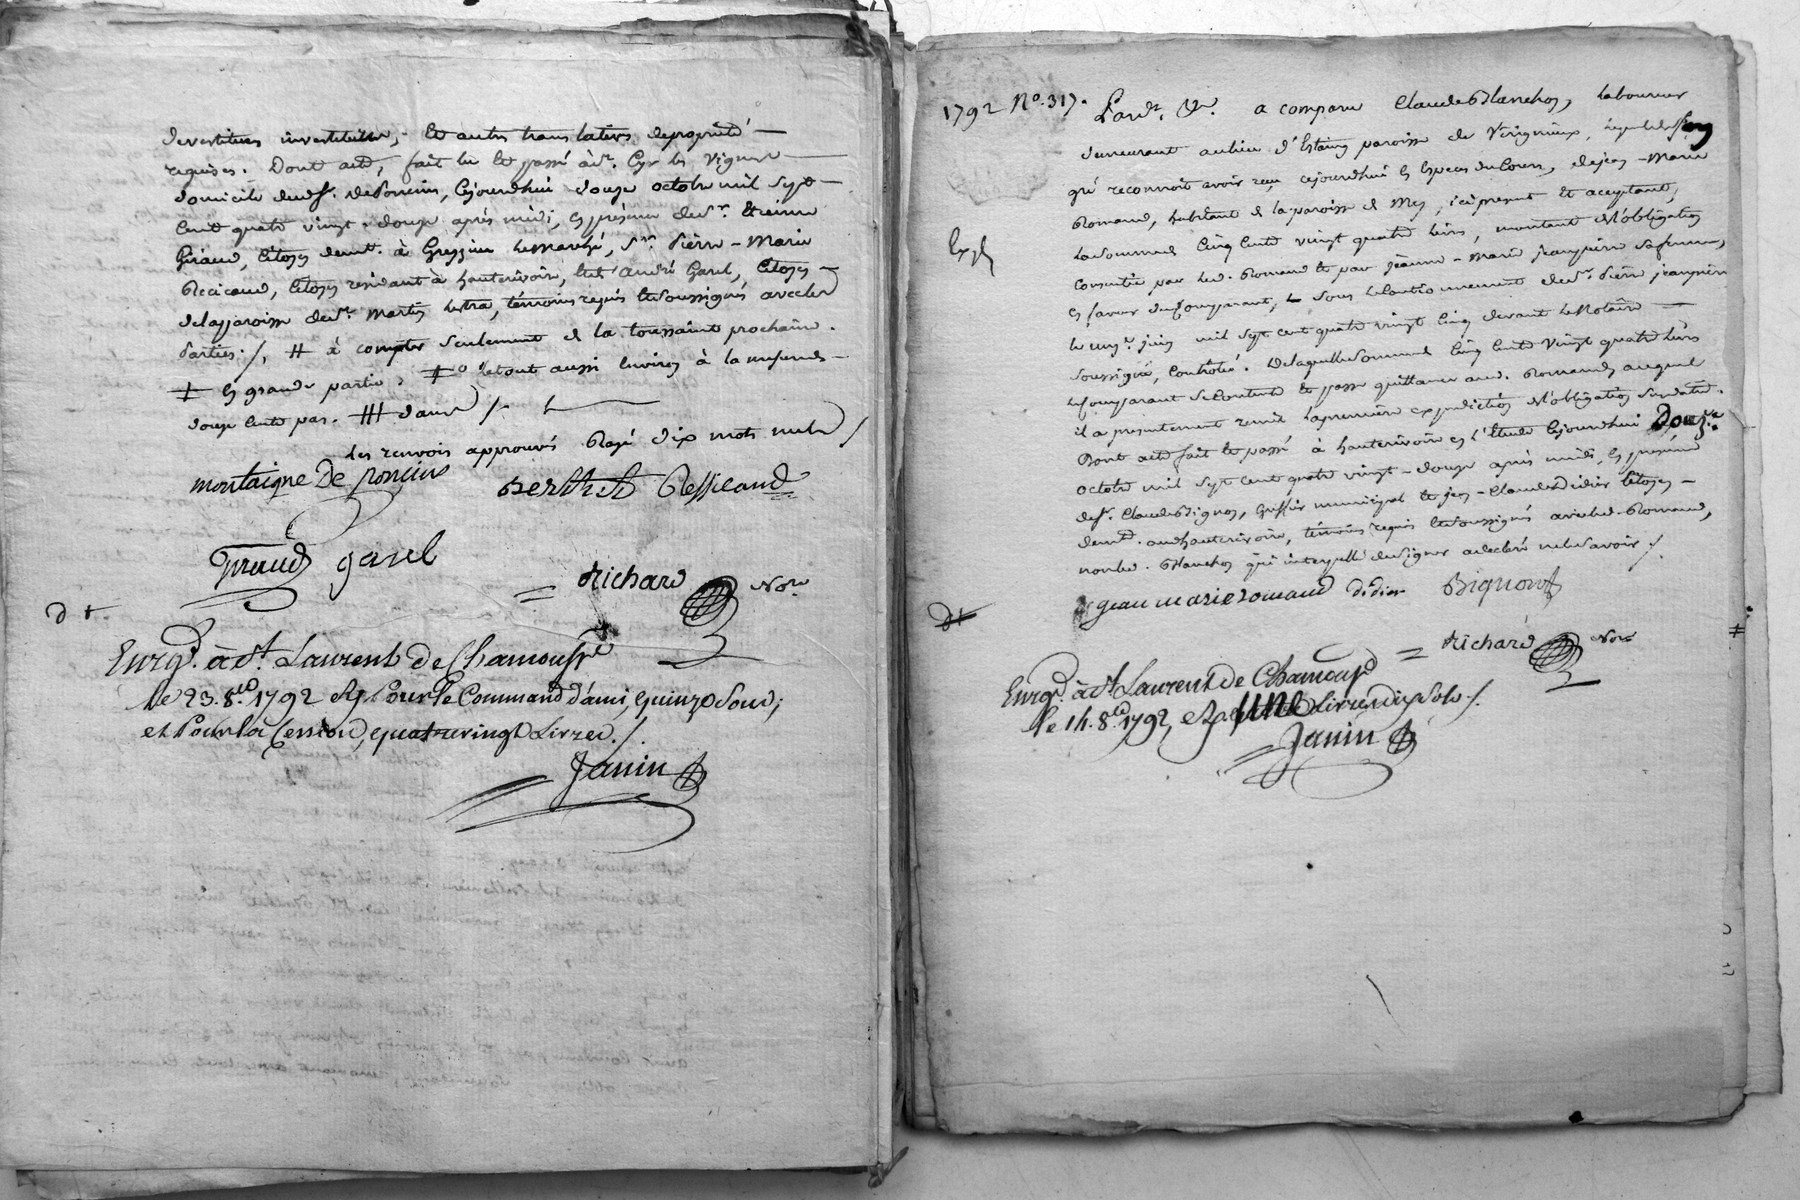 devestitures investitures, et autres translatives de propriété
requises. Dont acte, fait lu et passé à St. Cyr les vignes
domicile dud. sr. de Poncins, cejourdhui douze octobre mil sept
cent quatre vingt douze après midi, en présence de sr. Etienne
Giraud, citoyen demt. à Grezieu le marché, sr. Pierre-Marie
citoyen résidant à hauterivoire, et andré Garel, citoyen
de la paroisse de st. Martin lestra, témoins requis et soussignés avec les
parties ./. # à compter seulement de la toussaint prochaine.
ǂ en grande partie. ǂ° le tout aussi environ à la mesure de
douze cents pas. ǂǂ d'avoir /.
les renvois approuvés Rayé dix mots nuls /
montaigne De poncins Berthet Ressicaud
Giraud garel
= Richard Nore
d t.
Enregt. à St. Laurent de Chamousset
le 23. 8.bre 1792 Pour le Command d'ami, quinze sous;
et Pour la Cession, quatre vingt Livres ./.
Janin
1792 No. 317.
Pardt. &r. a comparu Claude Blanchon, laboureur
demeurant au lieu d'Estaing paroisse de Virignieux, lequel de son
gré reconnoit avoir reçu cejourdhui en espèces du cours, de jean-Marie
Romand, habitant de la paroisse de Mey, ici present et acceptant,
la somme de Cinq cents vingt quatre livres, montant de l'obligation
consentie par led. Romand et par jeanne-Marie jeanpierre sa femme,
en faveur du comparant, et sous le cautionnement de sr. Pierre jeanpierre
le juin mil sept cent quatre vingt cinq devant le Notaire
soussigné, controlé. De laquelle somme de cinq cents vingt quatre livres
le comparant se contente et passe quittance aud. Romand, auquel
il a presentement remis la premiere expedition de l'obligation susdatée.
Dont acte fait et passé à hauterivoire en l'étude cejourdhui Douze
octobre mil sept cent quatre vingt-douze après midi, en présence
de sr. Claude Bignon, greffier municipal et jean-Claude Didier citoyen
demt. aud. hauterivoire, témoins requis et soussignés avec led. Romand,
non led. Blanchon qui interpellé de signer a declaré ne le savoir ./.
jean marie romand didier Bignon
= Richard Nore
Enregt. à St. Laurent de Chamousset
le 14. 8.bre 1792, une Livre dix sols ./.
Janin